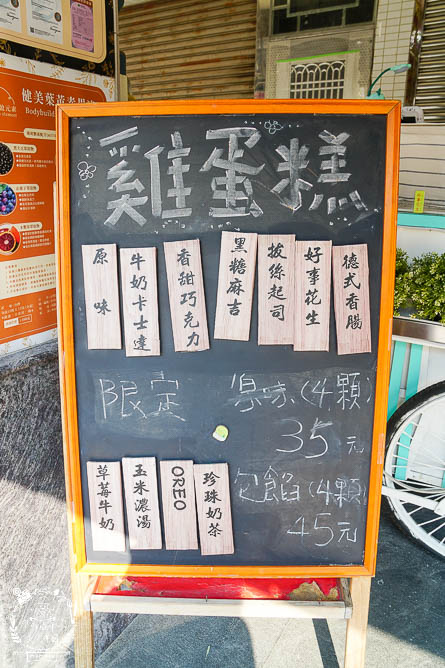 健美葉黃素果昔
Bodybuild
雞蛋糕
原味
牛奶卡士達
香甜巧克力
黑糖麻吉
拔絲起司
好事花生
德式香腸
限定
原味(4顆)
35元
草莓牛奶
玉米濃湯
OREO
珍珠奶茶
包餡(4顆)
45元